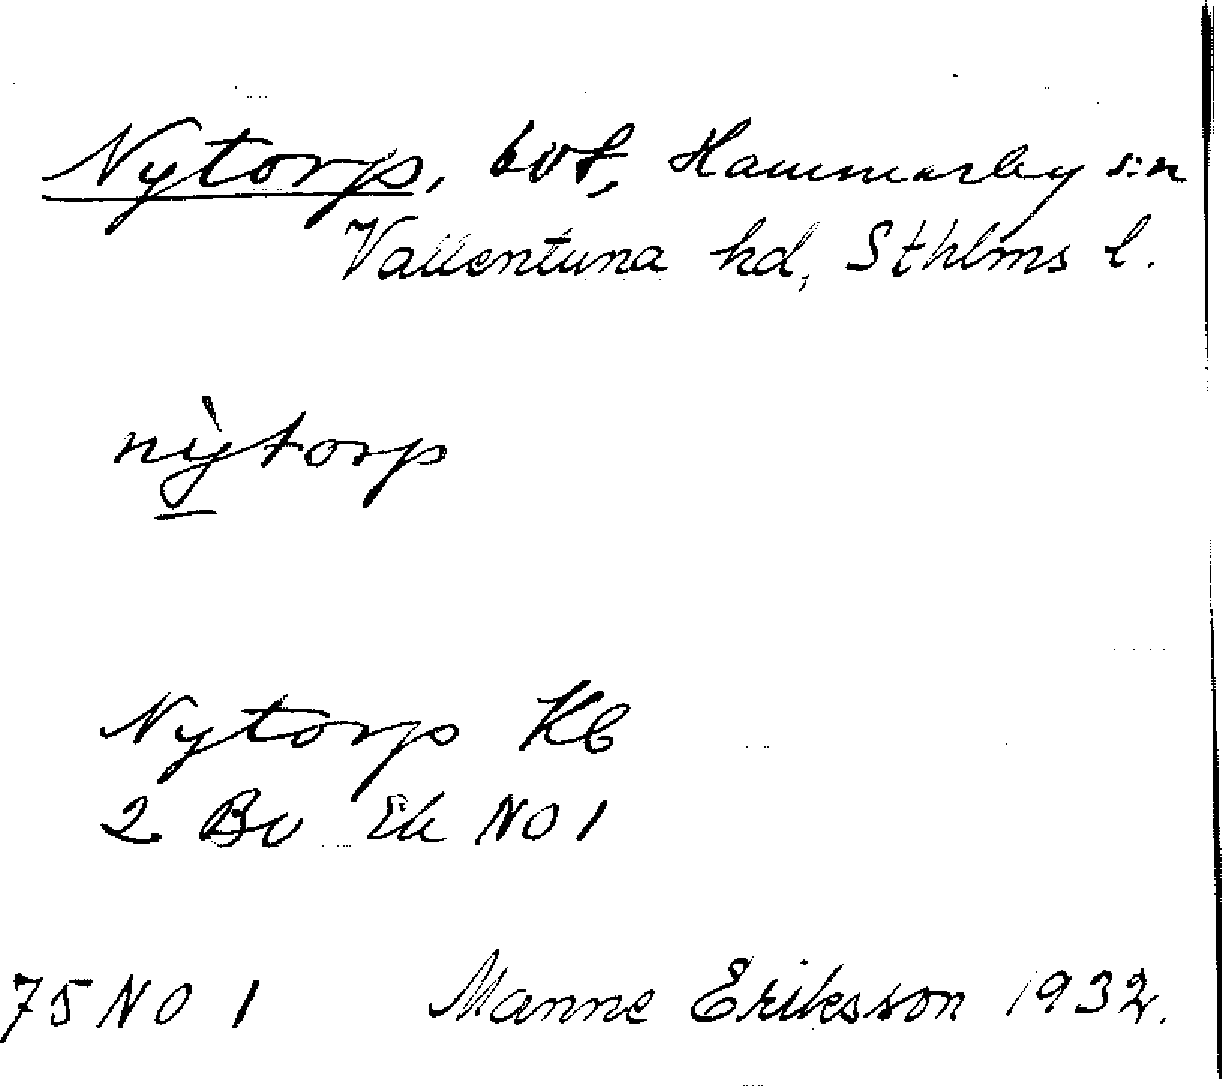 Nytorp, bost, Hammarby s:n
Vallentuna hd, Sthlms l.
nỳtorp
Nytorp Kb
2 Bv Ek NO 1
75 NO 1 Manne Eriksson 1932.